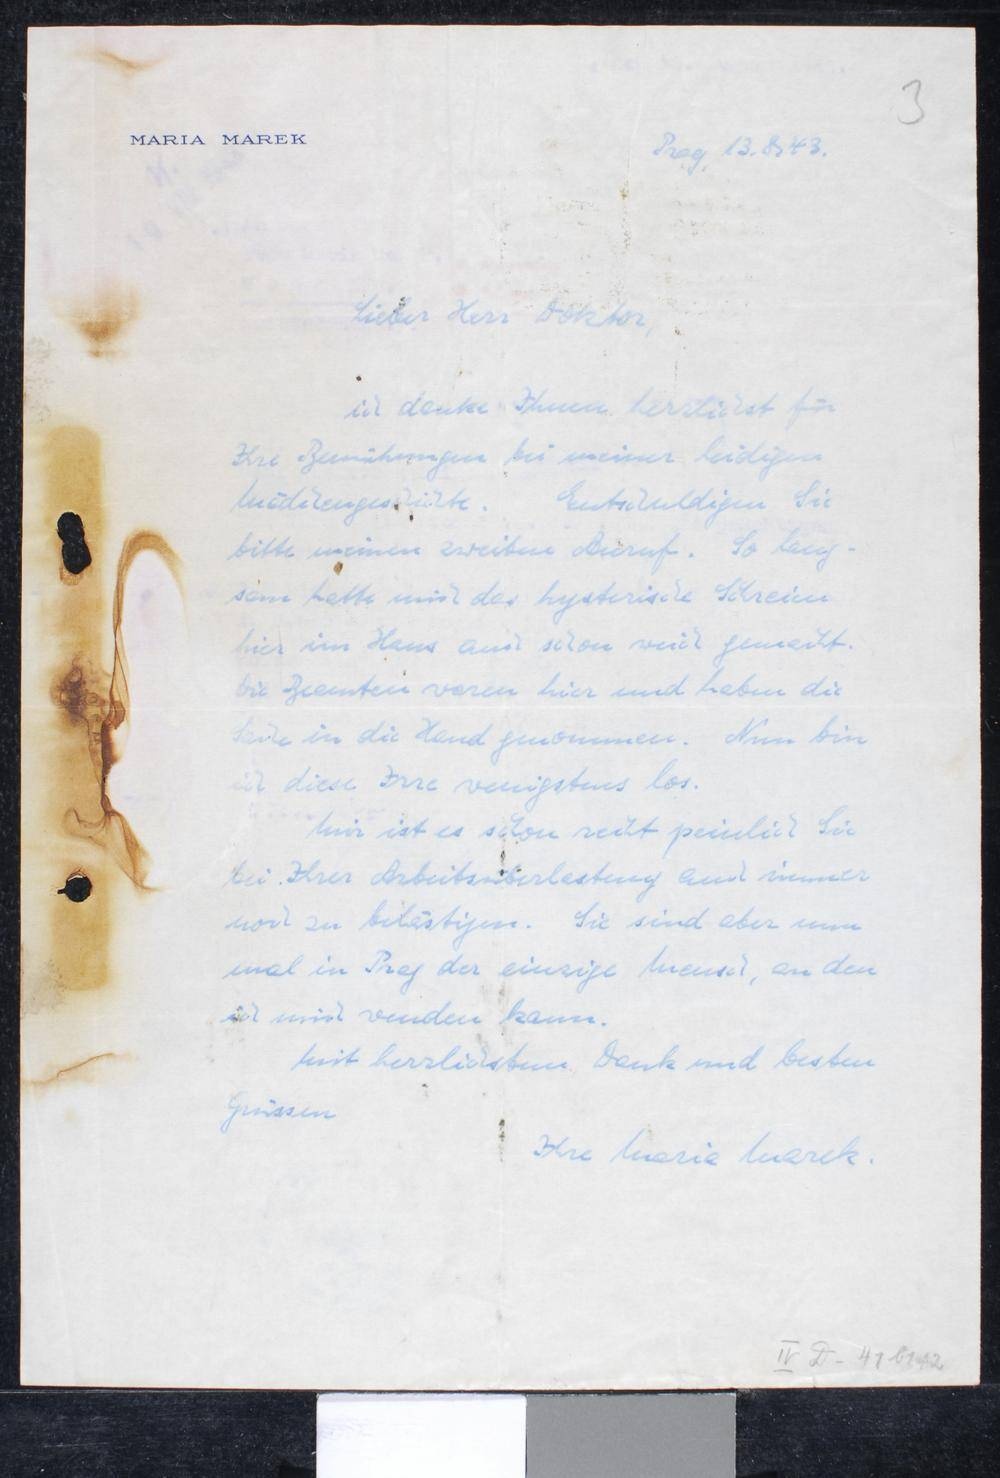 3
MARIA MAREK
Prag, 13.8.43.
Lieber Herr Doktor,
ich danke Ihnen herzlichst für
Ihre Bemühungen bei meiner leidigen
Mädchengeschichte. Entschuldigen Sie
bitte meinen zweiten Anruf. So lang-
sam hatte mich das hysterische Schreien
hier im Haus auch schon weich gemacht.
Die Beamten waren hier und haben die
Sache in die Hand genommen. Nun bin
ich diese Irre wenigstens los.
Mir ist es schon recht peinlich Sie
bei Ihrer Arbeitsüberlastung auch immer
noch zu belästigen. Sie sind aber nun
mal in Prag der einzige Mensch, an den
ich mich wenden kann.
Mit herzlichstem Dank und besten
Grüssen
Ihre Maria Marek.
IV D-